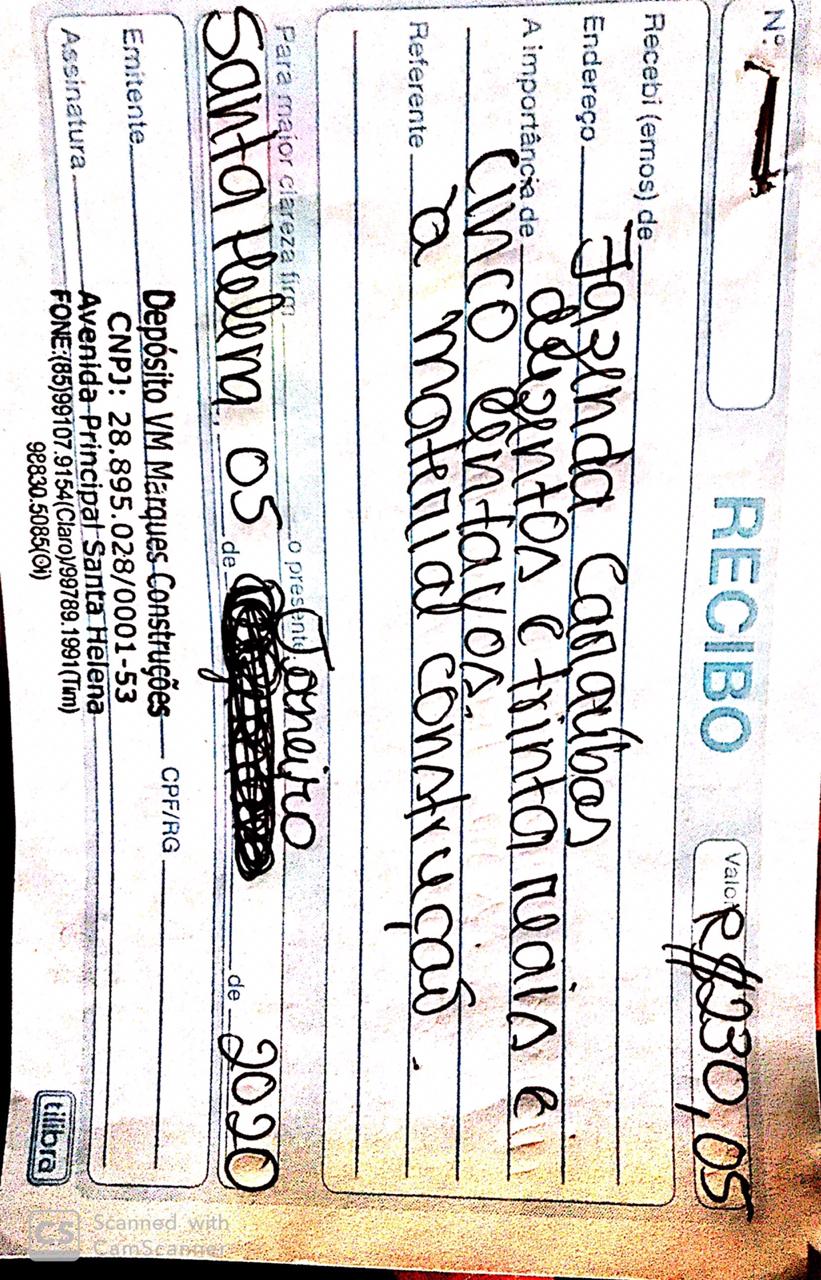 Nº 1
RECIBO
Valor R$230,05
Recebi (emos) de
Endereço Fazenda Caraúbas
A importância de duzentos e trinta reais e
cinco centavos
Referente a material construção.
Para maior clareza firm o presente
Santa Helena, 05 de Janeiro de 2020
Emitente CPF/RG
Assinatura
Depósito VM Marques Construções
CNPJ: 28.895.028/0001-53
Avenida Principal Santa Helena
FONE:(85)99107.9154(Claro)/99789.1991(Tim)
98830.5085(Oi)
tilibra
CS Scanned with
CamScanner